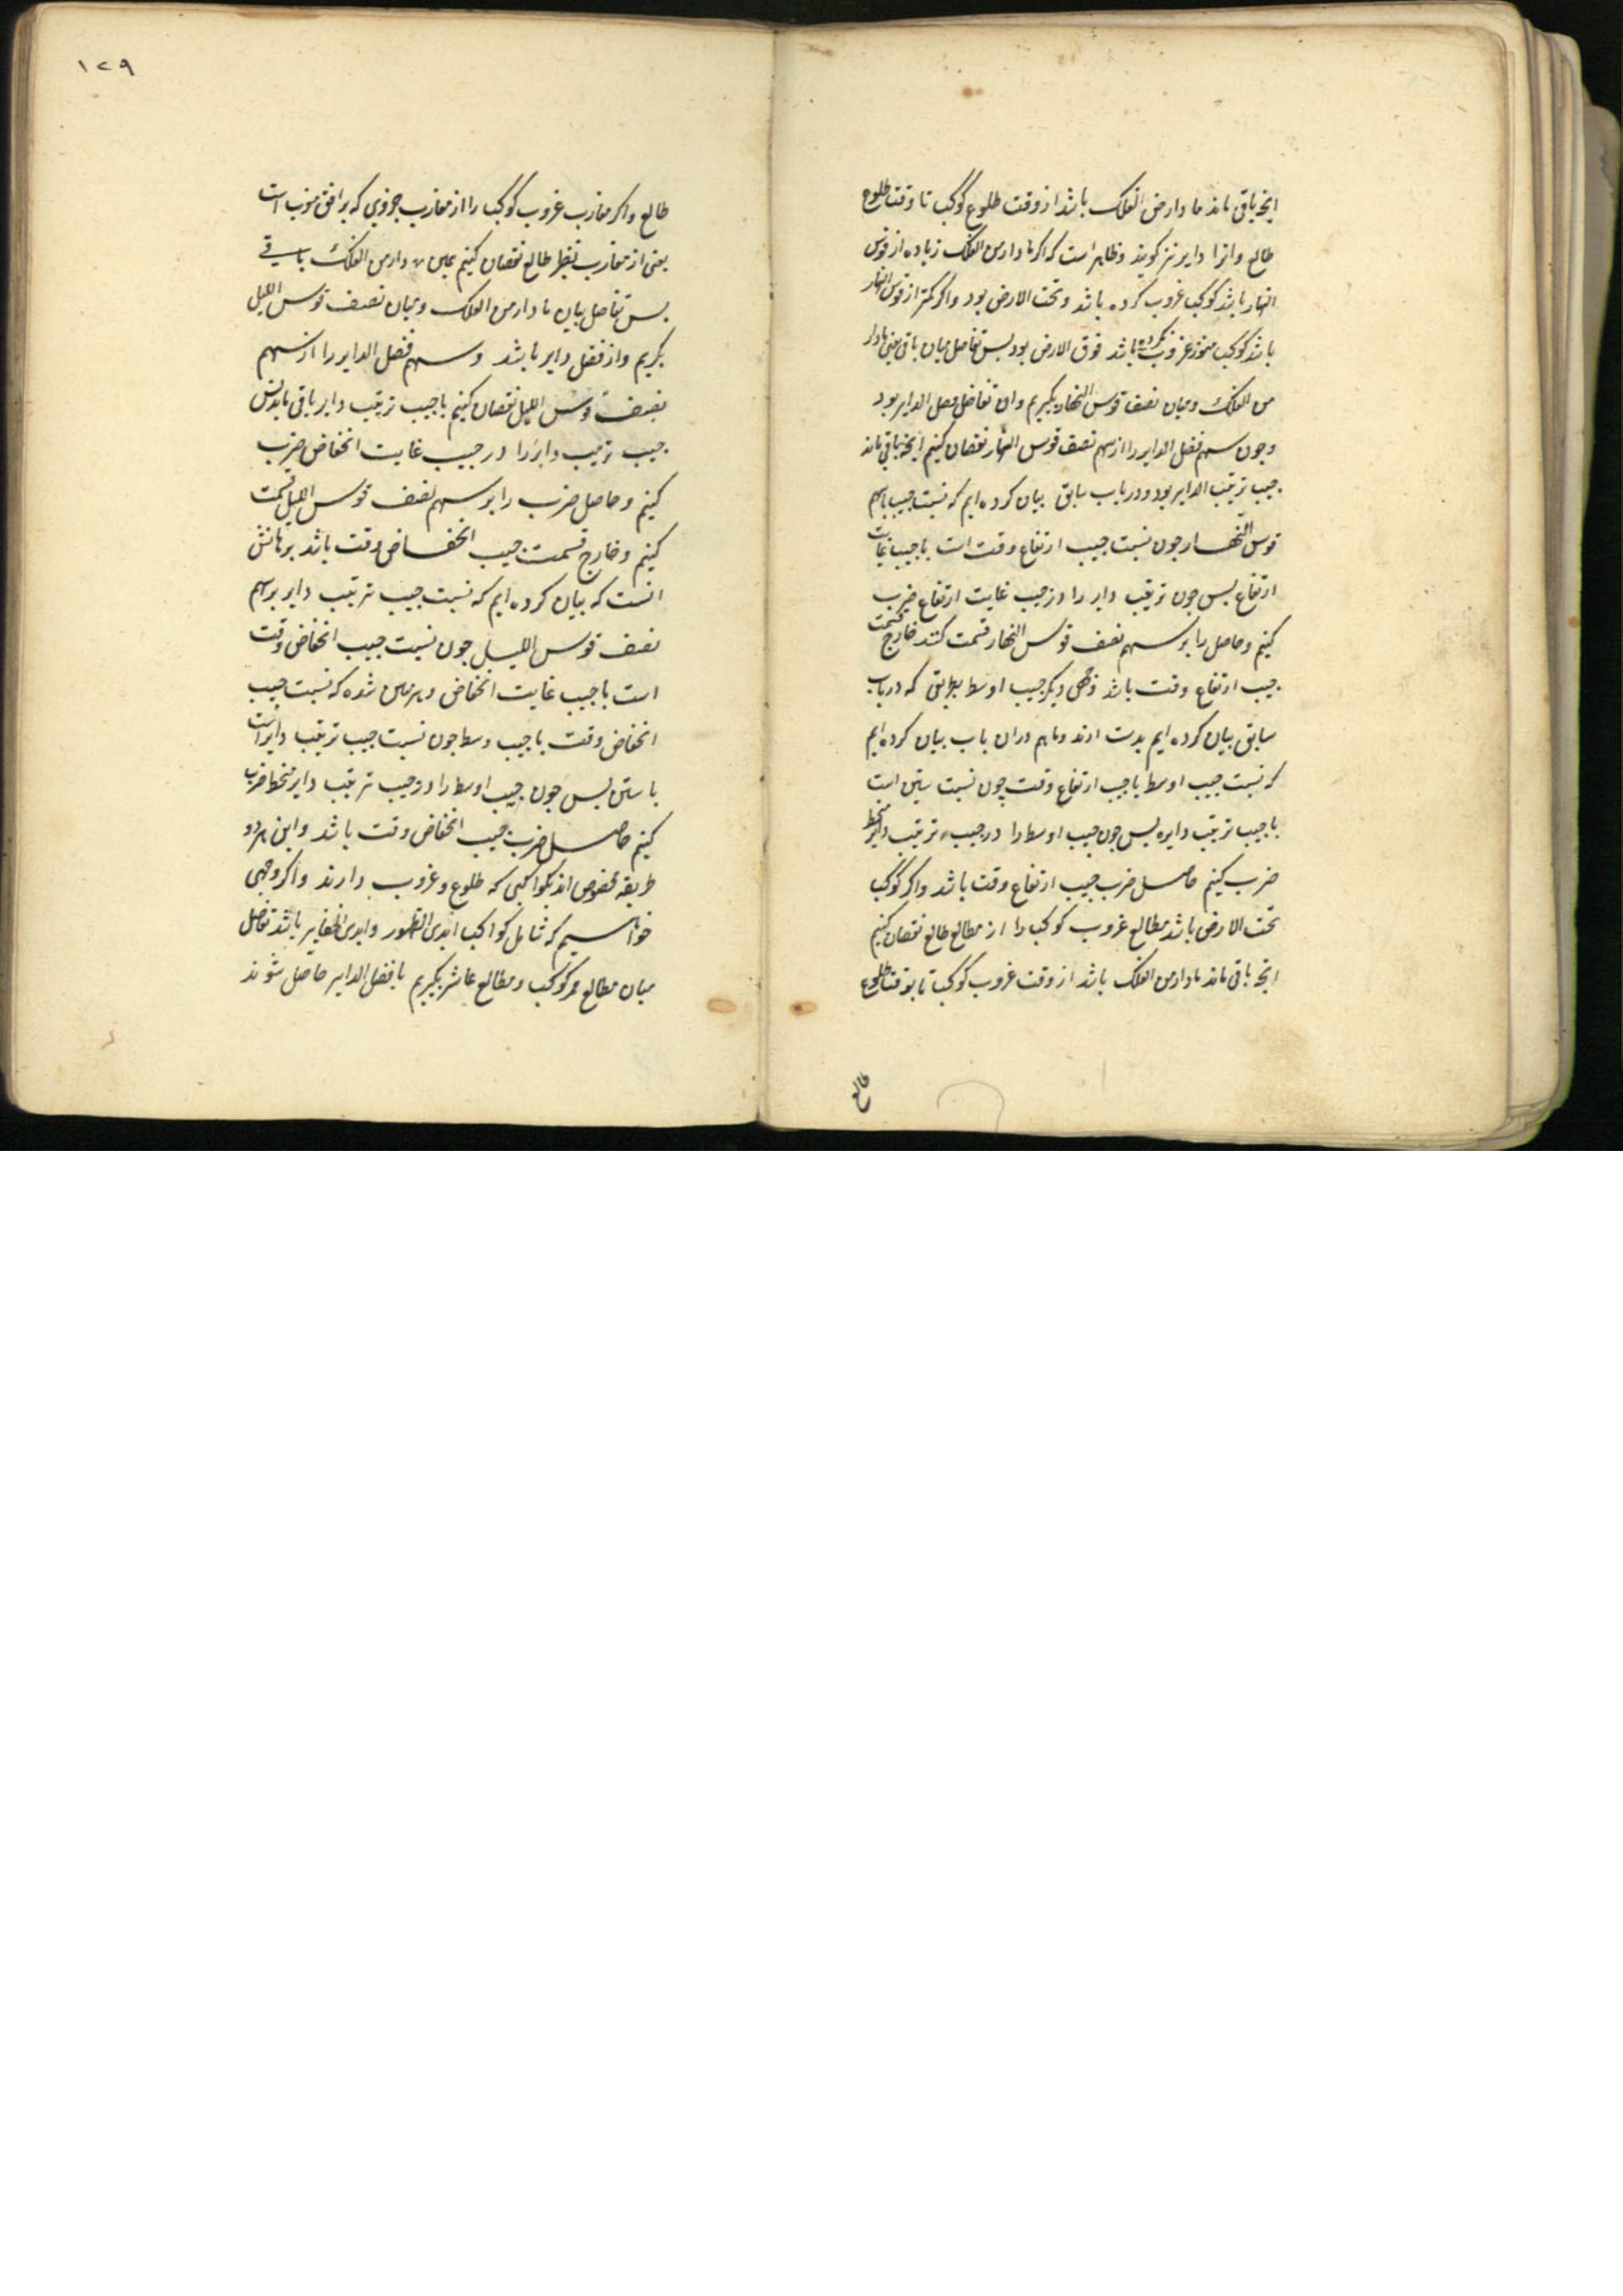 انچه باقی ماند ما دار من الفلک باشد از وقت طلوع کوکب تا وقت طلوع
طالع و انرا دایر نیز کویند و ظاهر است که اکر ما دار من الفلک زیاده از قوس
النهار باشد کوکب غروب کرده باشد و تحت الارض بود و اکر کمتر از قوس النهار
باشد کوکب هنوز غروب نکرده باشد فوق الارض بود بس تفاضل میان باقی یعنی ما دار
من الفلک و میان نصف قوس النهار بکیریم و ان تفاضل فضل الدایر بود
و جون سهم فضل الدایر را از سهم نصف قوس النهار نقصان کنیم انچه باقی ماند
جیب ترتیب الدایر بود و در باب سابق بیان کرده ایم که نسبت جیب با سهم
قوس النهار جون نسبت جیب ارتفاع وقت است با جیب غایت
ارتفاع بس جون ترتیب دایر را در جیب غایت ارتفاع ضرب
کنیم و حاصل را بر سهم نصف قوس النهار قسمت کنند خارج قسمت
جیب ارتفاع وقت باشد وجهی دیکر جیب اوسط بطریقی که در باب
سابق بیان کرده ایم بدست ارند و ما هم دران باب بیان کرده ایم
که نسبت جیب اوسط با جیب ارتفاع وقت چون نسبت ستین است
با جیب ترتیب دایره بس جون جیب اوسط را در جیب ترتیب دایر منحط
ضرب کنیم حاصل ضرب جیب ارتفاع وقت باشد و اکر کوکب
تحت الارض باشد مطالع غروب کوکب را از مطالع طالع نقصان کنیم
انچه باقی ماند ما دار من الفلک باشد از وقت غروب کوکب تا بوقت طلوع
طالع
۱۲۹
طالع و اکر مغارب غروب کوکب را از مغارب جزوی که بر افق مغرب است
یعنی از مغارب نظیر طالع نقصان کنیم همان ما دار من الفلک باقی
بس تفاضل میان ما دار من الفلک و میان نصف قوس اللیل
بکریم وان فضل دایر باشد و سهم فضل الدایر را از سهم
نصف قوس اللیل نقصان کنیم تا جیب ترتیب دایر باقی ماند بس
جیب ترتیب دایر را در جیب غایت انخفاض ضرب
کنیم و حاصل ضرب را بر سهم نصف قوس اللیل قسمت
کنیم و خارج قسمت جیب انخفاض وقت باشد برهانش
انست که بیان کرده ایم که نسبت جیب ترتیب دایر بر سهم
نصف قوس اللیل جون نسبت جیب انخفاض وقت
است با جیب غایت انخفاض و مبرهن شده که نسبت جیب
انخفاض وقت با جیب وسط جون نسبت جیب ترتیب دایر است
با ستین بس جون جیب اوسط را در جیب ترتیب دایر منحط ضرب
کنیم حاصل ضرب جیب انخفاض وقت باشد و این هر دو
طریقه مخصوص اند بکواکبی که طلوع و غروب دارند و اکر وجهی
خواهیم که شامل کواکب ابدی الظهور و ابدی الخفا نیز باشد تفاضل
میان مطالع ممر کوکب و مطالع عاشر بکیریم تا فضل الدایر حاصل شوند